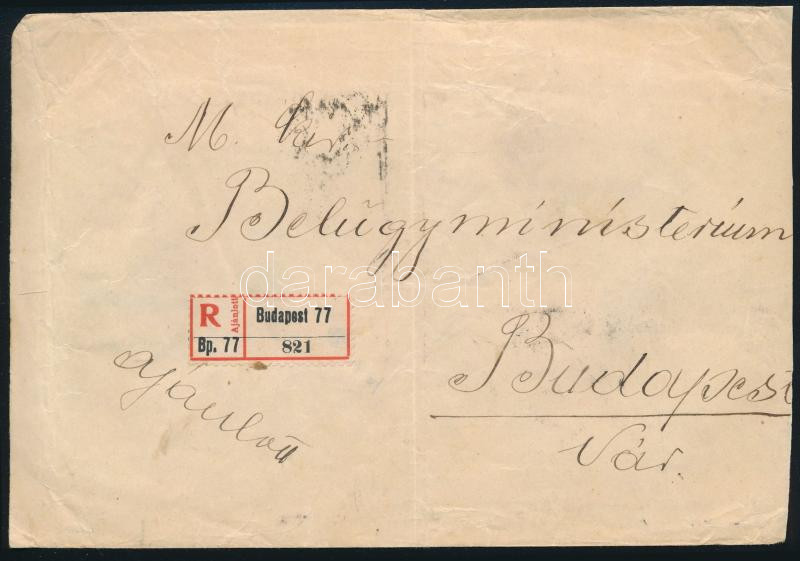 M. kir.
Belügyministerium
darabanth
R Ajánlott Budapest 77
Bp. 77 821
ajánlott
Budapest
Vár.